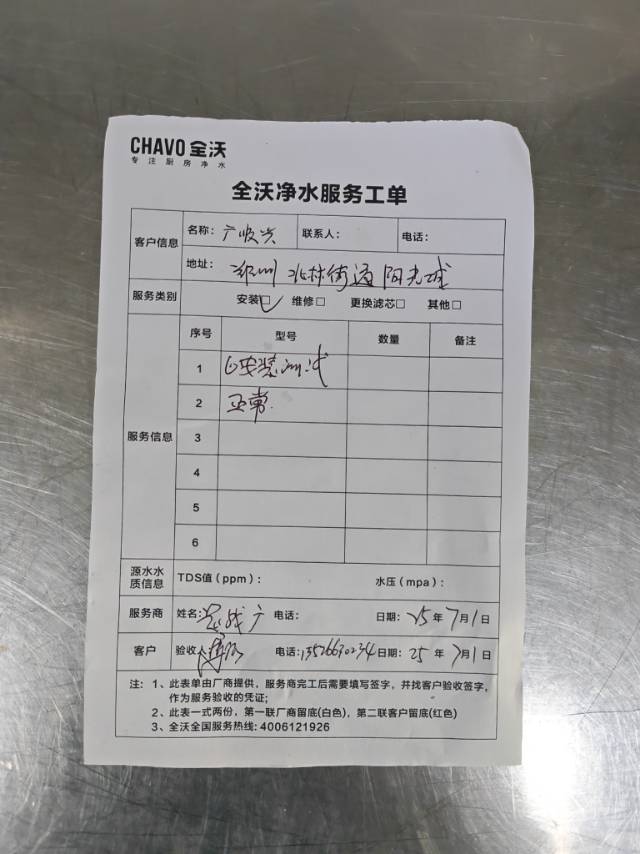 CHAVO 全沃
专注厨房净水
全沃净水服务工单
客户信息 名称: 广顺兴 联系人: 电话:
地址: 郑州 北林街道阳光城
服务类别 安装☑ 维修□ 更换滤芯□ 其他□
服务信息 序号 型号 数量 备注
1 已安装测试
2 正常.
3
4
5
6
源水水质信息 TDS值(ppm): 水压(mpa):
服务商 姓名: 电话: 日期: 25年7月1日
客户 验收人 电话: 13526690234 日期: 25年7月1日
注: 1、此表单由厂商提供,服务商完工后需要填写签字,并找客户验收签字,
作为服务验收的凭证;
2、此表一式两份,第一联厂商留底(白色),第二联客户留底(红色)
3、全沃全国服务热线: 4006121926